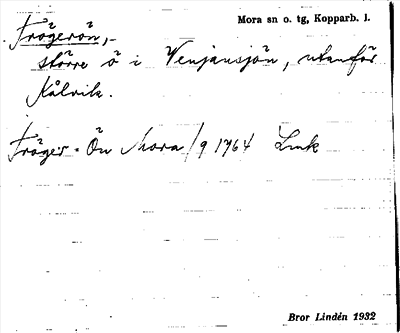 Mora sn o. tg, Kopparb. l.
Frögerön,-
större ö i Venjansjön, utanför
Kålvik.
Fröger- Ön Mora /9 1764 Lmk
Bror Lindén 1932